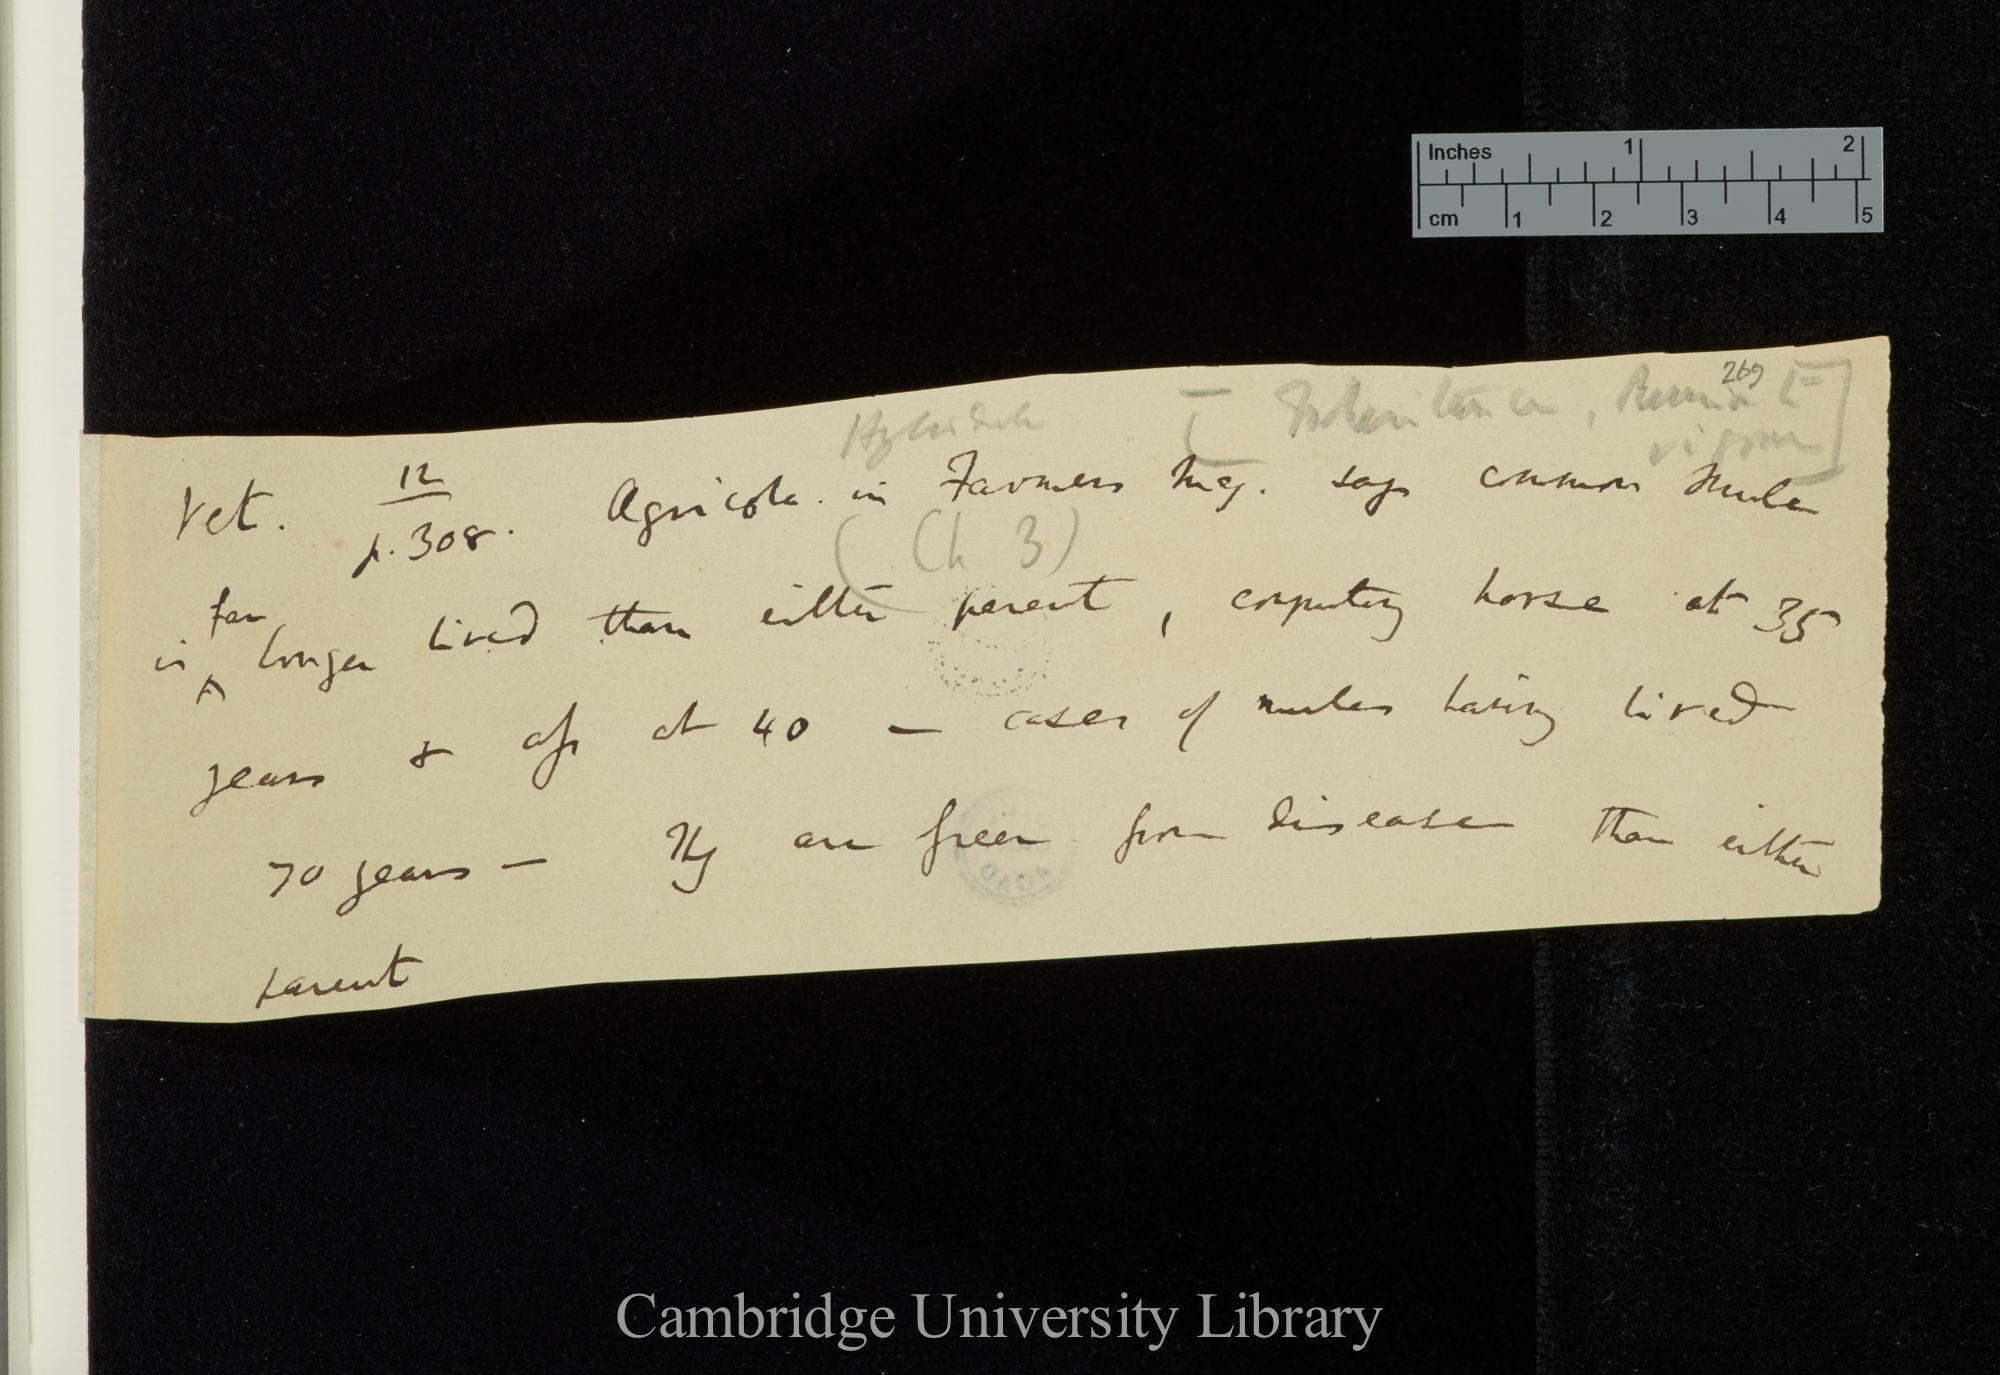 269
Hybridish [ Inheritance,
vigour ]
Vet. 12/p. 308. Agricola. in Farmers Mag. says common Mule
(Ch 3)
is far longer lived than either parent, computing horse at 35
years & ass at 40 — cases of mules having lived
70 years — They are freer from disease than either
parent
Inches 1 2
cm 1 2 3 4 5
Cambridge University Library